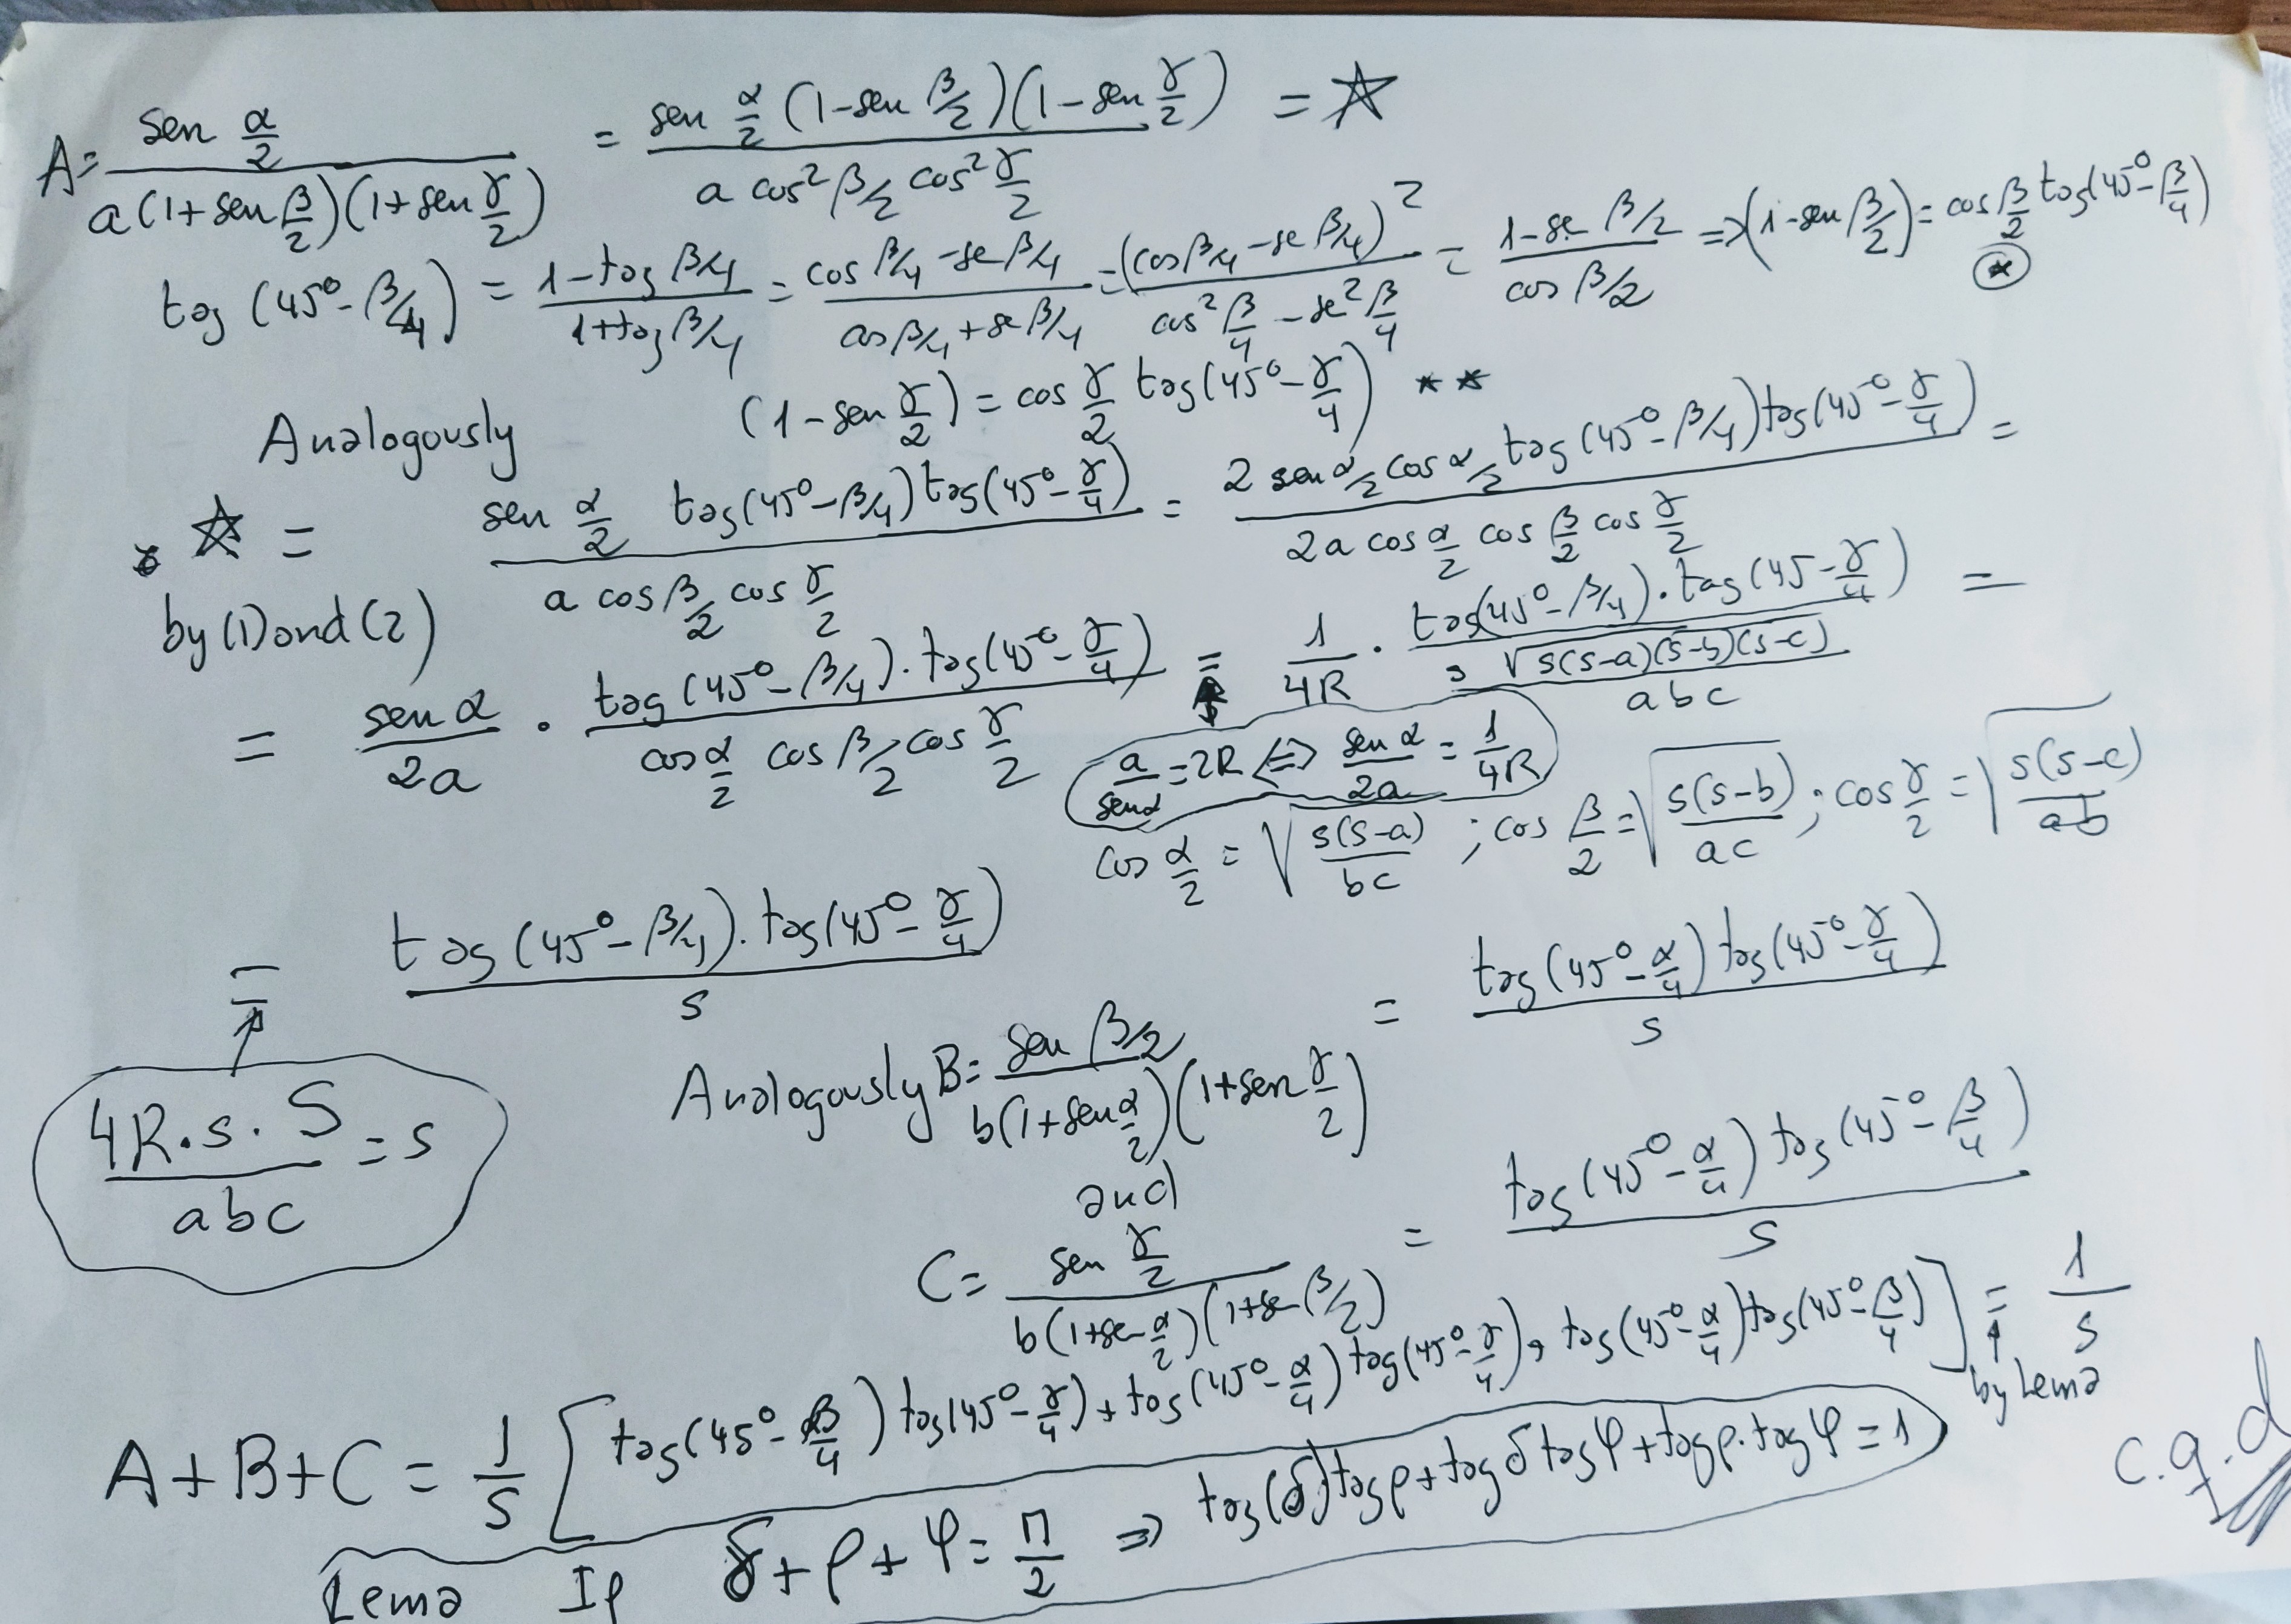 A= sen α/2 / a(1+sen β/2)(1+sen γ/2) = sen α/2 (1-sen β/2)(1-sen γ/2) / a cos² β/2 cos² γ/2 = ☆
tag (45°-β/4) = 1-tag β/4 / 1+tag β/4 = cos β/4 -se β/4 / cos β/4 +se β/4 = (cos β/4 -se β/4)² / cos² β/4 - se² β/4 = 1-se β/2 / cos β/2 => (1-sen β/2) = cos β/2 tag(45°-β/4) ⊛
Analogously (1-sen γ/2) = cos γ/2 tag(45°-γ/4) **
☆ = sen α/2 tag(45°-β/4) tag(45°-γ/4) / a cos β/2 cos γ/2 = 2 sen α/2 cos α/2 tag (45°-β/4) tag(45°-γ/4) / 2a cos α/2 cos β/2 cos γ/2 =
by (1) and (2)
= sen α / 2a · tag (45°-β/4) · tag(45°-γ/4) / cos α/2 cos β/2 cos γ/2 = 1/4R · tag(45°-β/4) · tag (45-γ/4) / s √s(s-a)(s-b)(s-c) / abc =
a/senα = 2R <=> sen α / 2a = 1/4R
cos α/2 = √ s(s-a) / bc ; cos β/2 = √ s(s-b) / ac ; cos γ/2 = √ s(s-c) / ab
= tag (45°-β/4) · tag(45°-γ/4) / s
4R·s·S / abc = s
Analogously B= sen β/2 / b(1+sen α/2)(1+sen γ/2) = tag (45°-α/4) tag(45°-γ/4) / s
and
C= sen γ/2 / b(1+se α/2)(1+se β/2) = tag (45°-α/4) tag (45°-β/4) / s
A+B+C = 1/s [ tag(45°-β/4) tag(45°-γ/4) + tag(45°-α/4) tag(45°-γ/4) + tag(45°-α/4) tag(45°-β/4) ] = 1/s
by Lema
c.q.d
Lema If δ+ρ+φ= π/2 => tag(δ) tag ρ + tag δ tag φ + tag ρ · tag φ = 1